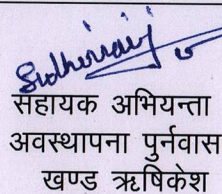 सहायक अभियन्ता
अवस्थापना पुर्नवास
खण्ड ऋषिकेश